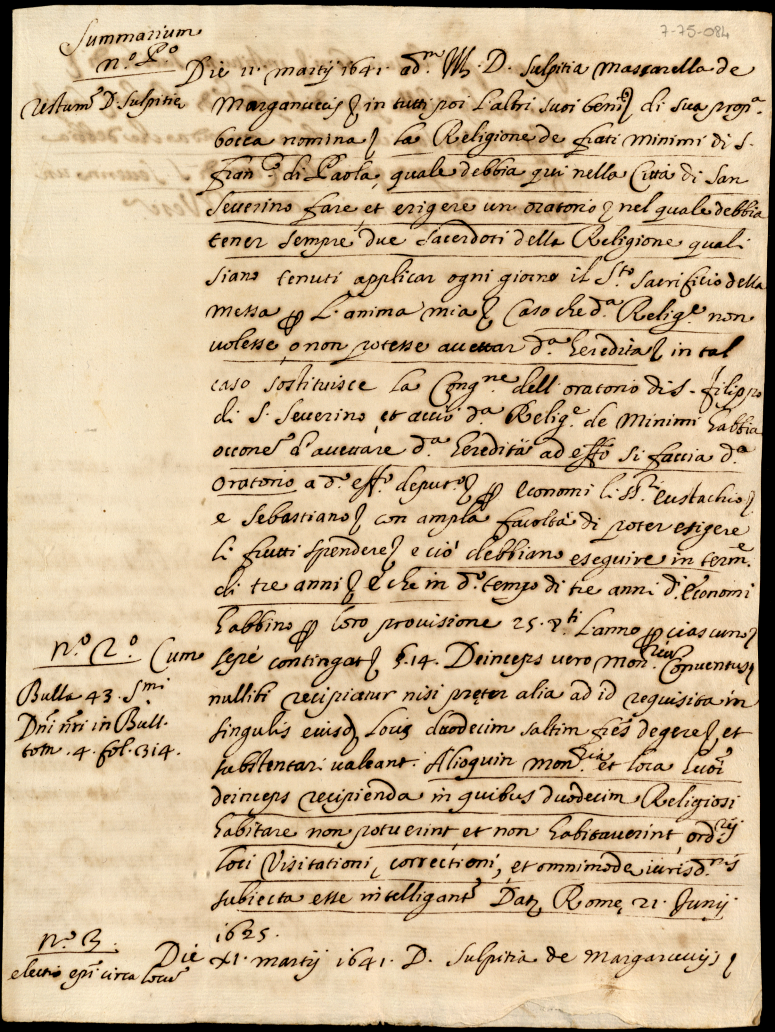 7-75-084
Summarium
n.º P.º
Testum D. Sulpitie
Die 11. martij 1641. ad.m Ill. D. Sulpitia Mascarella de
Margarucijs in tutti poi l'altri suoi beni di sua prop.a
bocca nomina la Religione de frati minimi di S.
Fran.co di Paola, quale debbia qui nella Città di San
Severino fare, et erigere un oratorio nel quale debbia
tener sempre due sacerdoti della Religione quali
siano tenuti applicar ogni giorno il S.to sacrificio della
messa p l'anima mia Caso che d.a Relig.e non
volesse, o non potesse accettar d.a heredità in tal
caso sostituisce la Cong.ne dell'oratorio di S. Filippo
di S. Severino, et acciò d.a Relig.e de Minimi habbia
d'accettare d.a heredità ad eff.o si faccia d.o
oratorio a d.o eff.o deputo p economi li SS.ri Eustachio
e Sebastiano con ampla facoltà di poter esigere
li frutti spendere e ciò debbiano eseguire in term.e
di tre anni e che in d.o tempo di tre anni d.i economi
habbino p loro provisione 25. l'anno p ciascuno
N.º 2.º Cum sepe contingat §.14. Deinceps vero mon.ria Conventus
Bulla 43. S.mi
Dni nri in Bull.
tom. 4. fol. 314.
nullibi recipiatur nisi preter alia ad id requisita in
singulis eiusd locis duodecim saltim fres degere, et
substentari valeant. Alioquin mon.ria et loca huoi
deinceps recipienda in quibus duodecim Religiosi
habitare non potuerint, et non habitaverint, ord.rij
loci Visitationi, correctioni, et omnimode iurisd.nis
subiecta esse intelligant Dat Rome, 21. Junij
1625.
N.º 3.
electio epi circa locum
Die XI. martij 1641. D. Sulpitia de Margarucijs